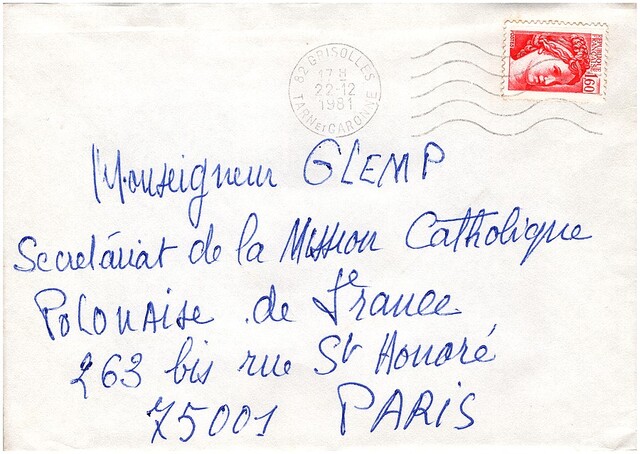 82 GRISOLLES
17 H
22-12
1981
TARN ET GARONNE
1,60
Monseigneur GLEMP
Secretáriat de la Mission Catholique
Polonaise de France
263 bis rue St Honoré
75001 PARIS